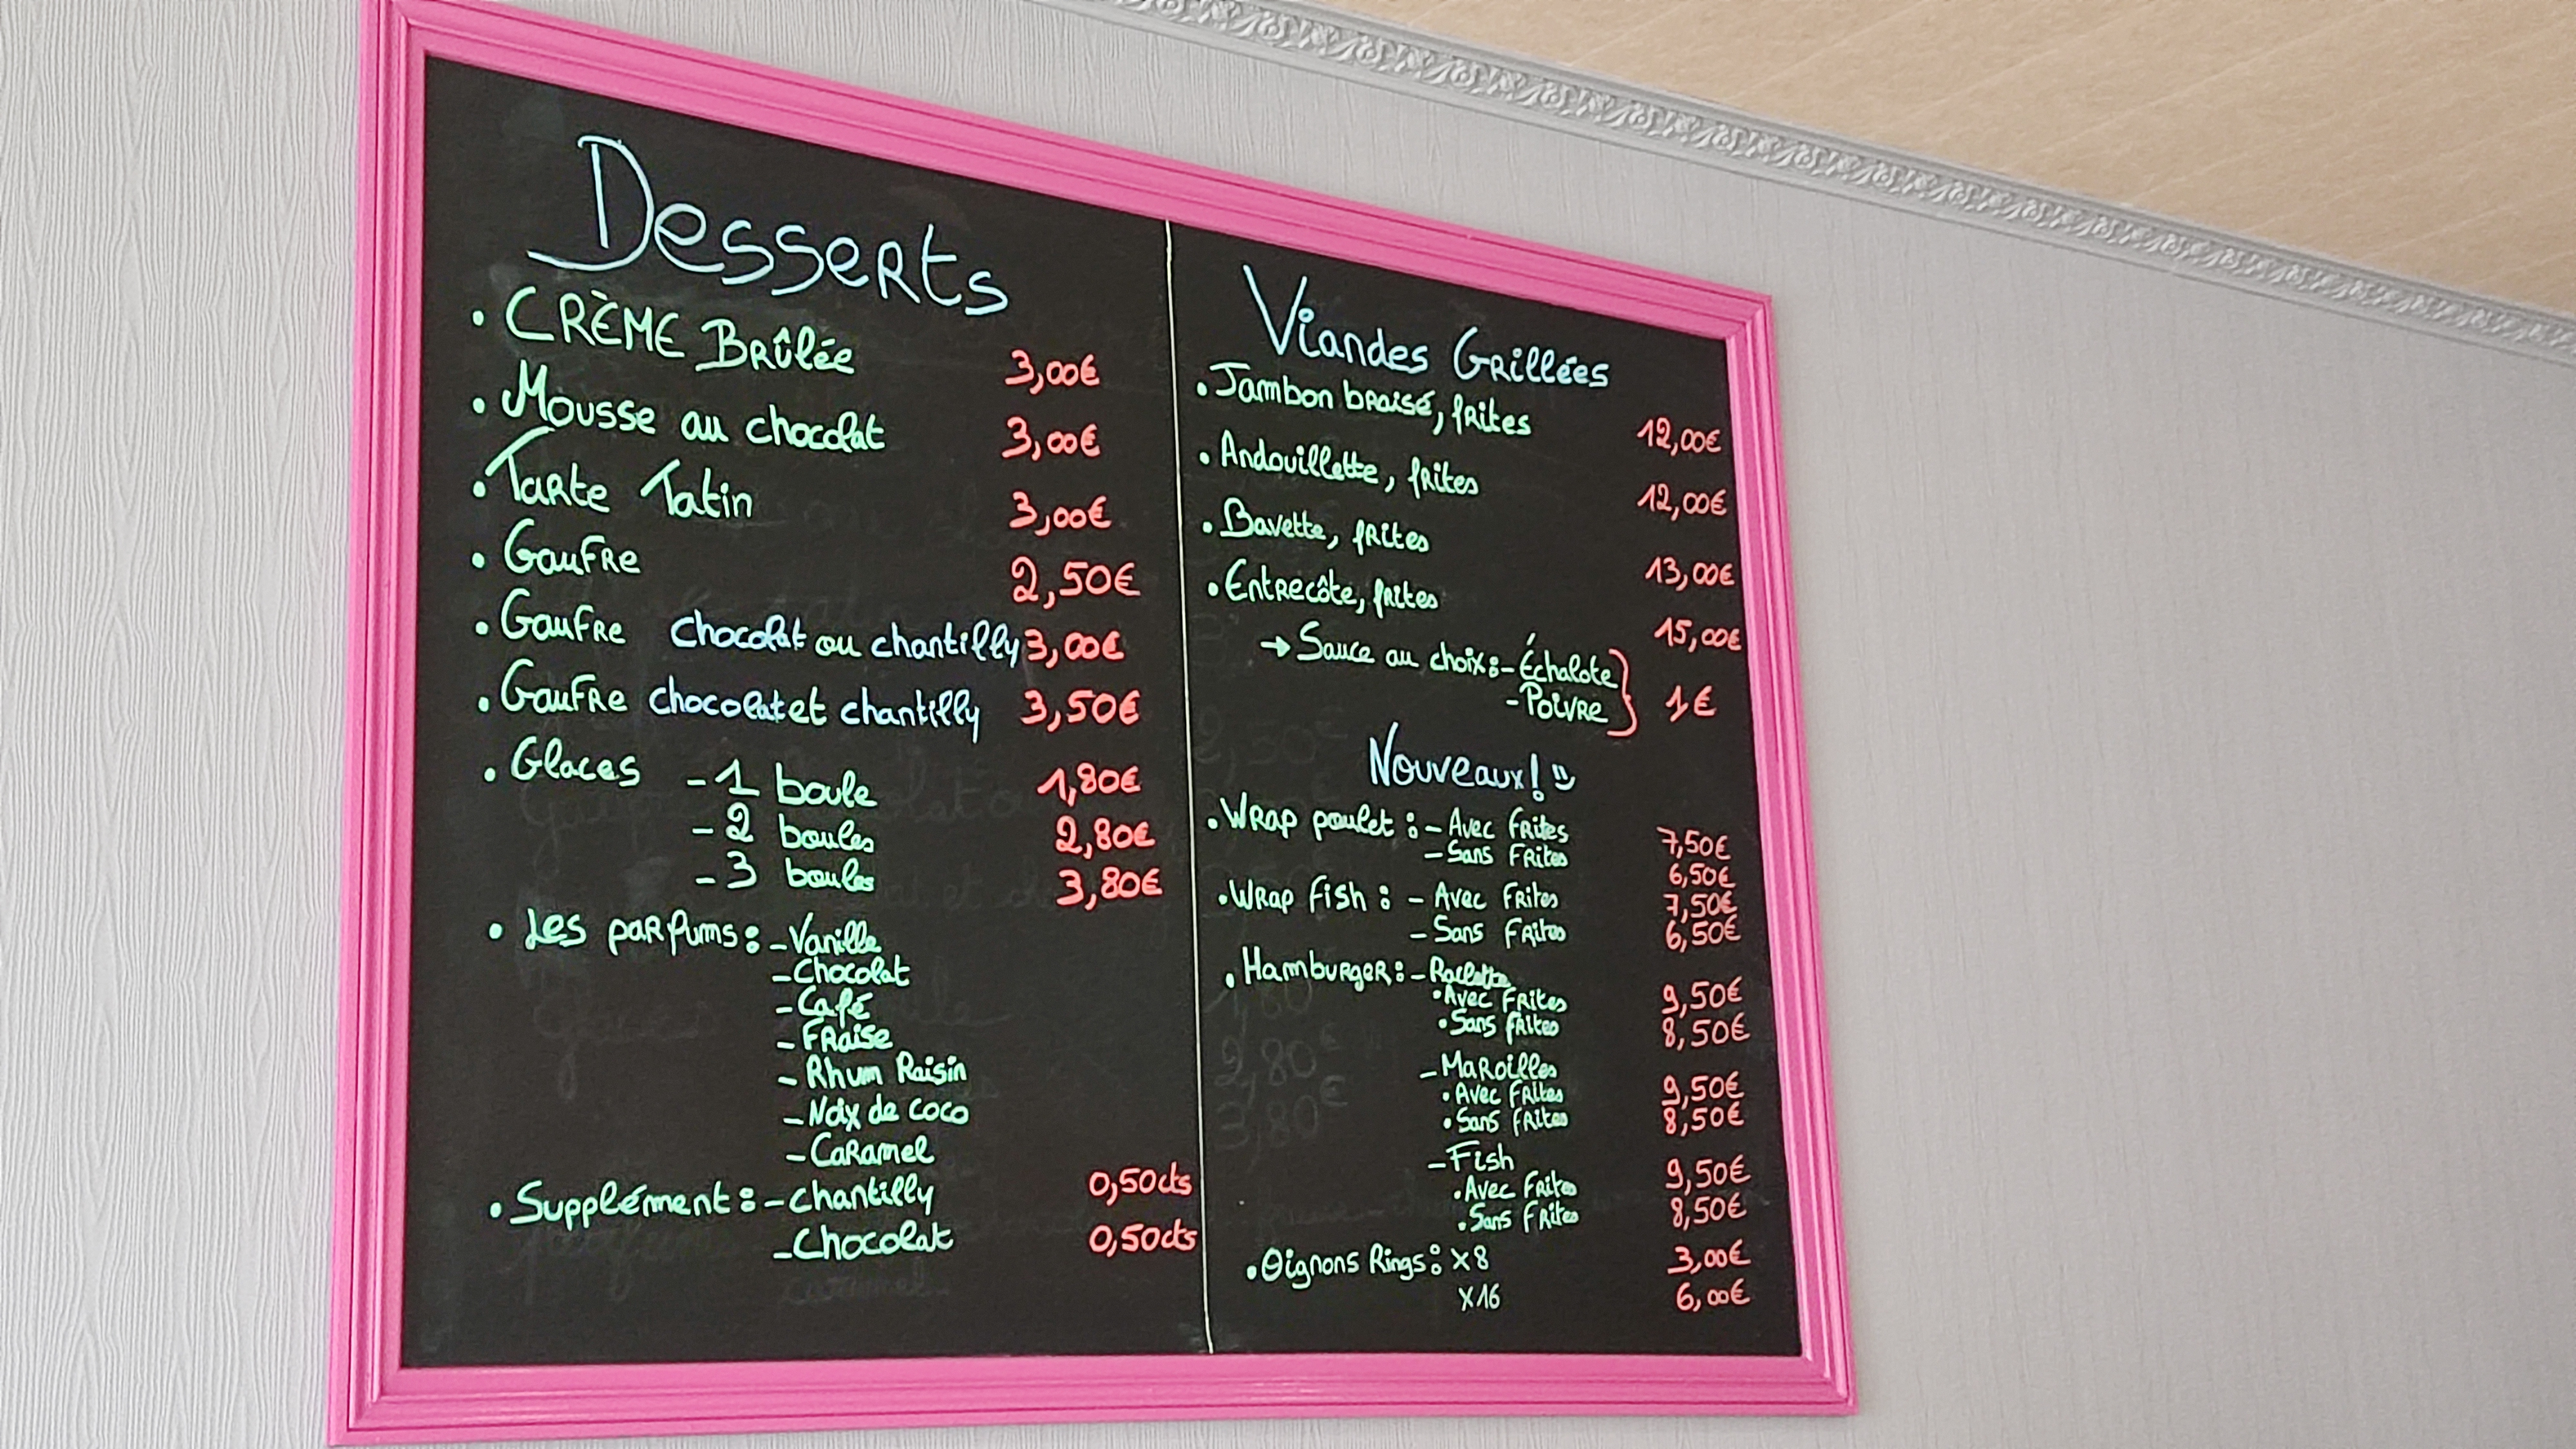 Desserts
• CRÈME BRûlée 3,00€
• Mousse au chocolat 3,00€
• Tarte Tatin 3,00€
• Gaufre 2,50€
• Gaufre chocolat ou chantilly 3,00€
• Gaufre chocolat et chantilly 3,50€
• Glaces - 1 boule 1,80€
- 2 boules 2,80€
- 3 boules 3,80€
• Les parfums : - Vanille
- Chocolat
- Café
- Fraise
- Rhum Raisin
- Noix de coco
- Caramel
• Supplément : - Chantilly 0,50cts
- Chocolat 0,50cts
Viandes Grillées
• Jambon braisé, frites 12,00€
• Andouillette, frites 12,00€
• Bavette, frites 13,00€
• Entrecôte, frites 15,00€
→ Sauce au choix : - Échalote
- Poivre } 1€
Nouveaux !
• Wrap poulet : - Avec frites 7,50€
- Sans frites 6,50€
• Wrap fish : - Avec frites 7,50€
- Sans frites 6,50€
• Hamburger : - Raclette
• Avec frites 9,50€
• Sans frites 8,50€
- Maroilles
• Avec frites 9,50€
• Sans frites 8,50€
- Fish
• Avec frites 9,50€
• Sans frites 8,50€
• Oignons Rings : x8 3,00€
x16 6,00€